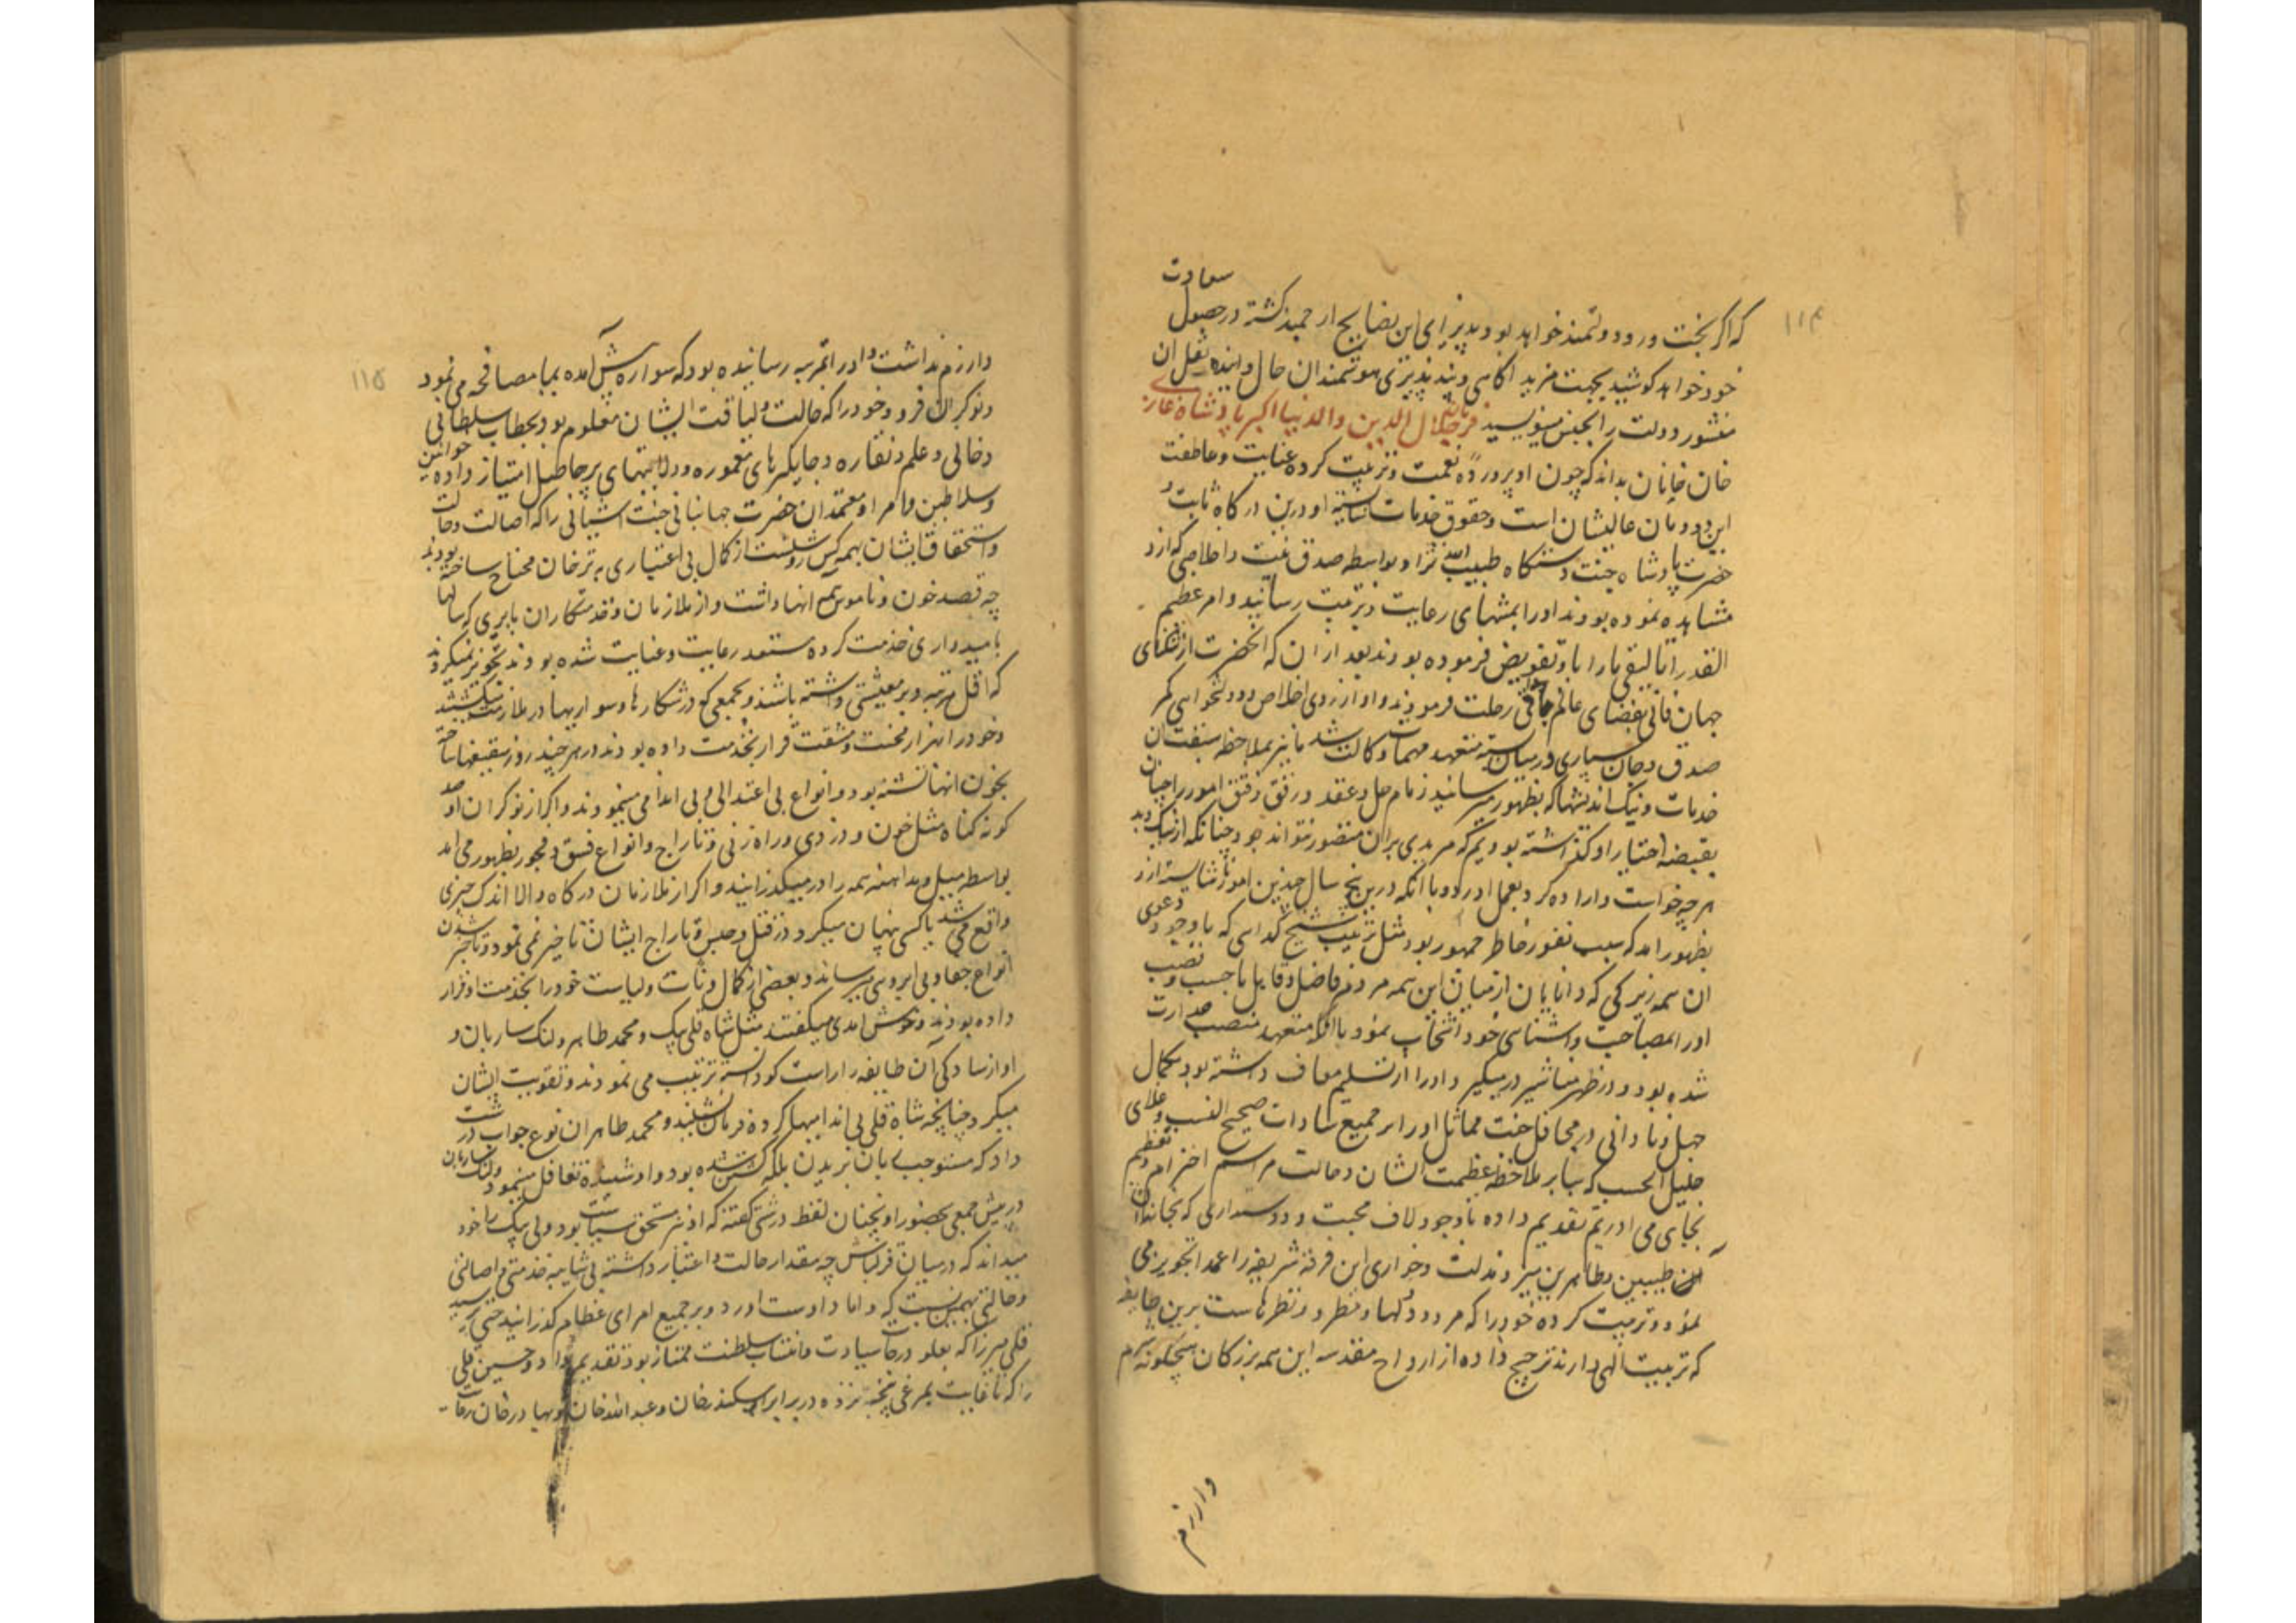 ۱۱۴
سعادت
که اگر بخت ور و دولتمند خواهد بود پذیرای این نصایح ارجمند گشته در حصول
خود خواهد کوشید بجهت مزید اگاهی و پند پذیری هوشمندان حال و اینده نقل ان
منشور دولت را بجنس مینویسد فرمان جلال الدین والدنیا اکبر پادشاه غازی
خان خانان بداند که چون او پرورده نعمت و تربیت کرده عنایت و عاطفت
این دودمان عالیشان است و حقوق خدمات شایسته او درین درگاه ثابت و
حضرت پادشاه جنت دستگاه طیب الله ثراه بواسطه صدق نیت و اخلاصی که ازو
مشاهده نموده بودند او را بمنتهای رعایت و تربیت رسانیده و امر عظیم
القدر اتالیقی ما را باو تفویض فرموده بودند بعد ازان که انحضرت از تنگنای
جهان فانی بفضای عالم باقی رحلت فرمودند و او از روی اخلاص و دولتخواهی کمر
صدق و جان سپاری در میان بسته متعهد مهمات وکالت شد ما نیز بملاحظه سبقت ان
خدمات و نیک اندیشیها که بظهور میرسانید زمام حل و عقد و رتق و فتق امور را چنان
بقبضه اختیار او گذاشته بودیم که مزیدی بران متصور نتواند بود چنانکه از نیک و بد
هرچه خواست و اراده کرد بعمل اورد و با انکه درین پنج سال چندین امور ناشایسته ازو
بظهور امد که سبب نفور خاطر جمهور بود مثل تربیت شیخ گدایی که با وجود دعوی
ان همه زیرکی که دانایان از میان این همه مردم فاضل و قابل با حسب و نسب
او را بمصاحبت و اشنایی خود انتخاب نمود با انکه متعهد منصب صدارت
شده بود و در ظهر مناشیر مهر میکرد و او را از تسلیم معاف داشته بود بکمال
جهل و نادانی در محافل جنت مماثل او را بر جمیع سادات صحیح النسب و علمای
جلیل الحسب که بنابر ملاحظه عظمت ایشان و حالت مراسم احترام و تعظیم
بجای می اوریم تقدیم داده با وجود لاف محبت و دوستداری که بخاندان
طیبین و طاهرین میزد مذلت و خواری این فرقه شریفه را عمدا تجویز می
نمود و تربیت کرده خود را که مردود دلها و نظرهاست برین طایفه
که تربیت الهی دارند ترجیح داده از ارواح مقدسه این همه بزرگان هیچگونه شرم
وازرم
۱۱۵
وازرم نداشت و او را بمرتبه رسانیده بود که سواره پیش آمده بما مصافحه می نمود
و نوکران فرود خود را که حالت و لیاقت ایشان معلوم بود بخطاب سلطانی
و خانی و علم و نقاره و جایگیرهای معموره و ولایتهای پرحاصل امتیاز داده خوانین
و سلاطین و امرا و معتمدان حضرت جهانبانی جنت اشیانی را که اصالت و حالت
و استحقاق ایشان بهمه کس روشنست از کمال بی اعتباری به ترخان محتاج ساخته بودند
چه قصد خون و ناموس همه انها داشت و از ملازمان و خدمتکاران بابری که سالها
بامیدواری خدمت کرده مستعد رعایت و عنایت شده بودند تجویز نمیکردند
که اقل مرتبه وجه معیشتی داشته باشند و جمعی که در شکارها و سواریها در ملازمت
و خود را بهزار محنت و مشقت قرار بخدمت داده بودند در هر چند روز
بخون انها تشنه بود و انواع بی اعتدالی و بی اندامی مینمودند و اگر از نوکران او صد
گونه گناه مثل خون و دزدی و راه زنی و تاراج و انواع فسق و فجور بظهور می امد
بواسطه میل و مداهنه همه را در میگذرانید و اگر از ملازمان درگاه والا اندک چیزی
واقع می شد یا کسی بهتان میکرد در قتل و حبس و تاراج ایشان تاخیر نمی نمود
انواع جفا و بی ابرویی میرساند و بعضی از کمال دنائت و لیاست خود را بخدمت او قرار
داده بودند و خوش امدی میگفتند مثل شاه قلی بیک و محمد طاهر و لنگ ساربان و
او از سادگی آن طایفه را راست گو دانسته تربیت می نمودند و تقویت ایشان
میکرد چنانچه شاه قلی بی اندامیها کرده فرمان نشنید و محمد طاهر ان نوع جواب درشت
داد که مستوجب زبان بریدن بلکه کشتن شده بود و او شنیده تغافل نمود و لنگ ساربان
در پیش جمعی بحضور او چنان لفظ درشتی گفته که او نیز مستحق سیاست بود ولی بیک را خود
میداند که در میان قزلباش چه مقدار حالت و اعتبار داشته بی شایبه خدمتی و اصالتی
و حالتی بهمین نسبت که داماد اوست اورده بر جمیع امرای عظام گذرانید حتی
قلی میرزا که بعلو درجات سیادت و انتساب سلطنت ممتاز بود تقدیم داد و حسین قلی
را که تا غایت بمرغی پنجه نزده در برابر اسکندر خان و عبدالله خان و بهادر خان رعایت